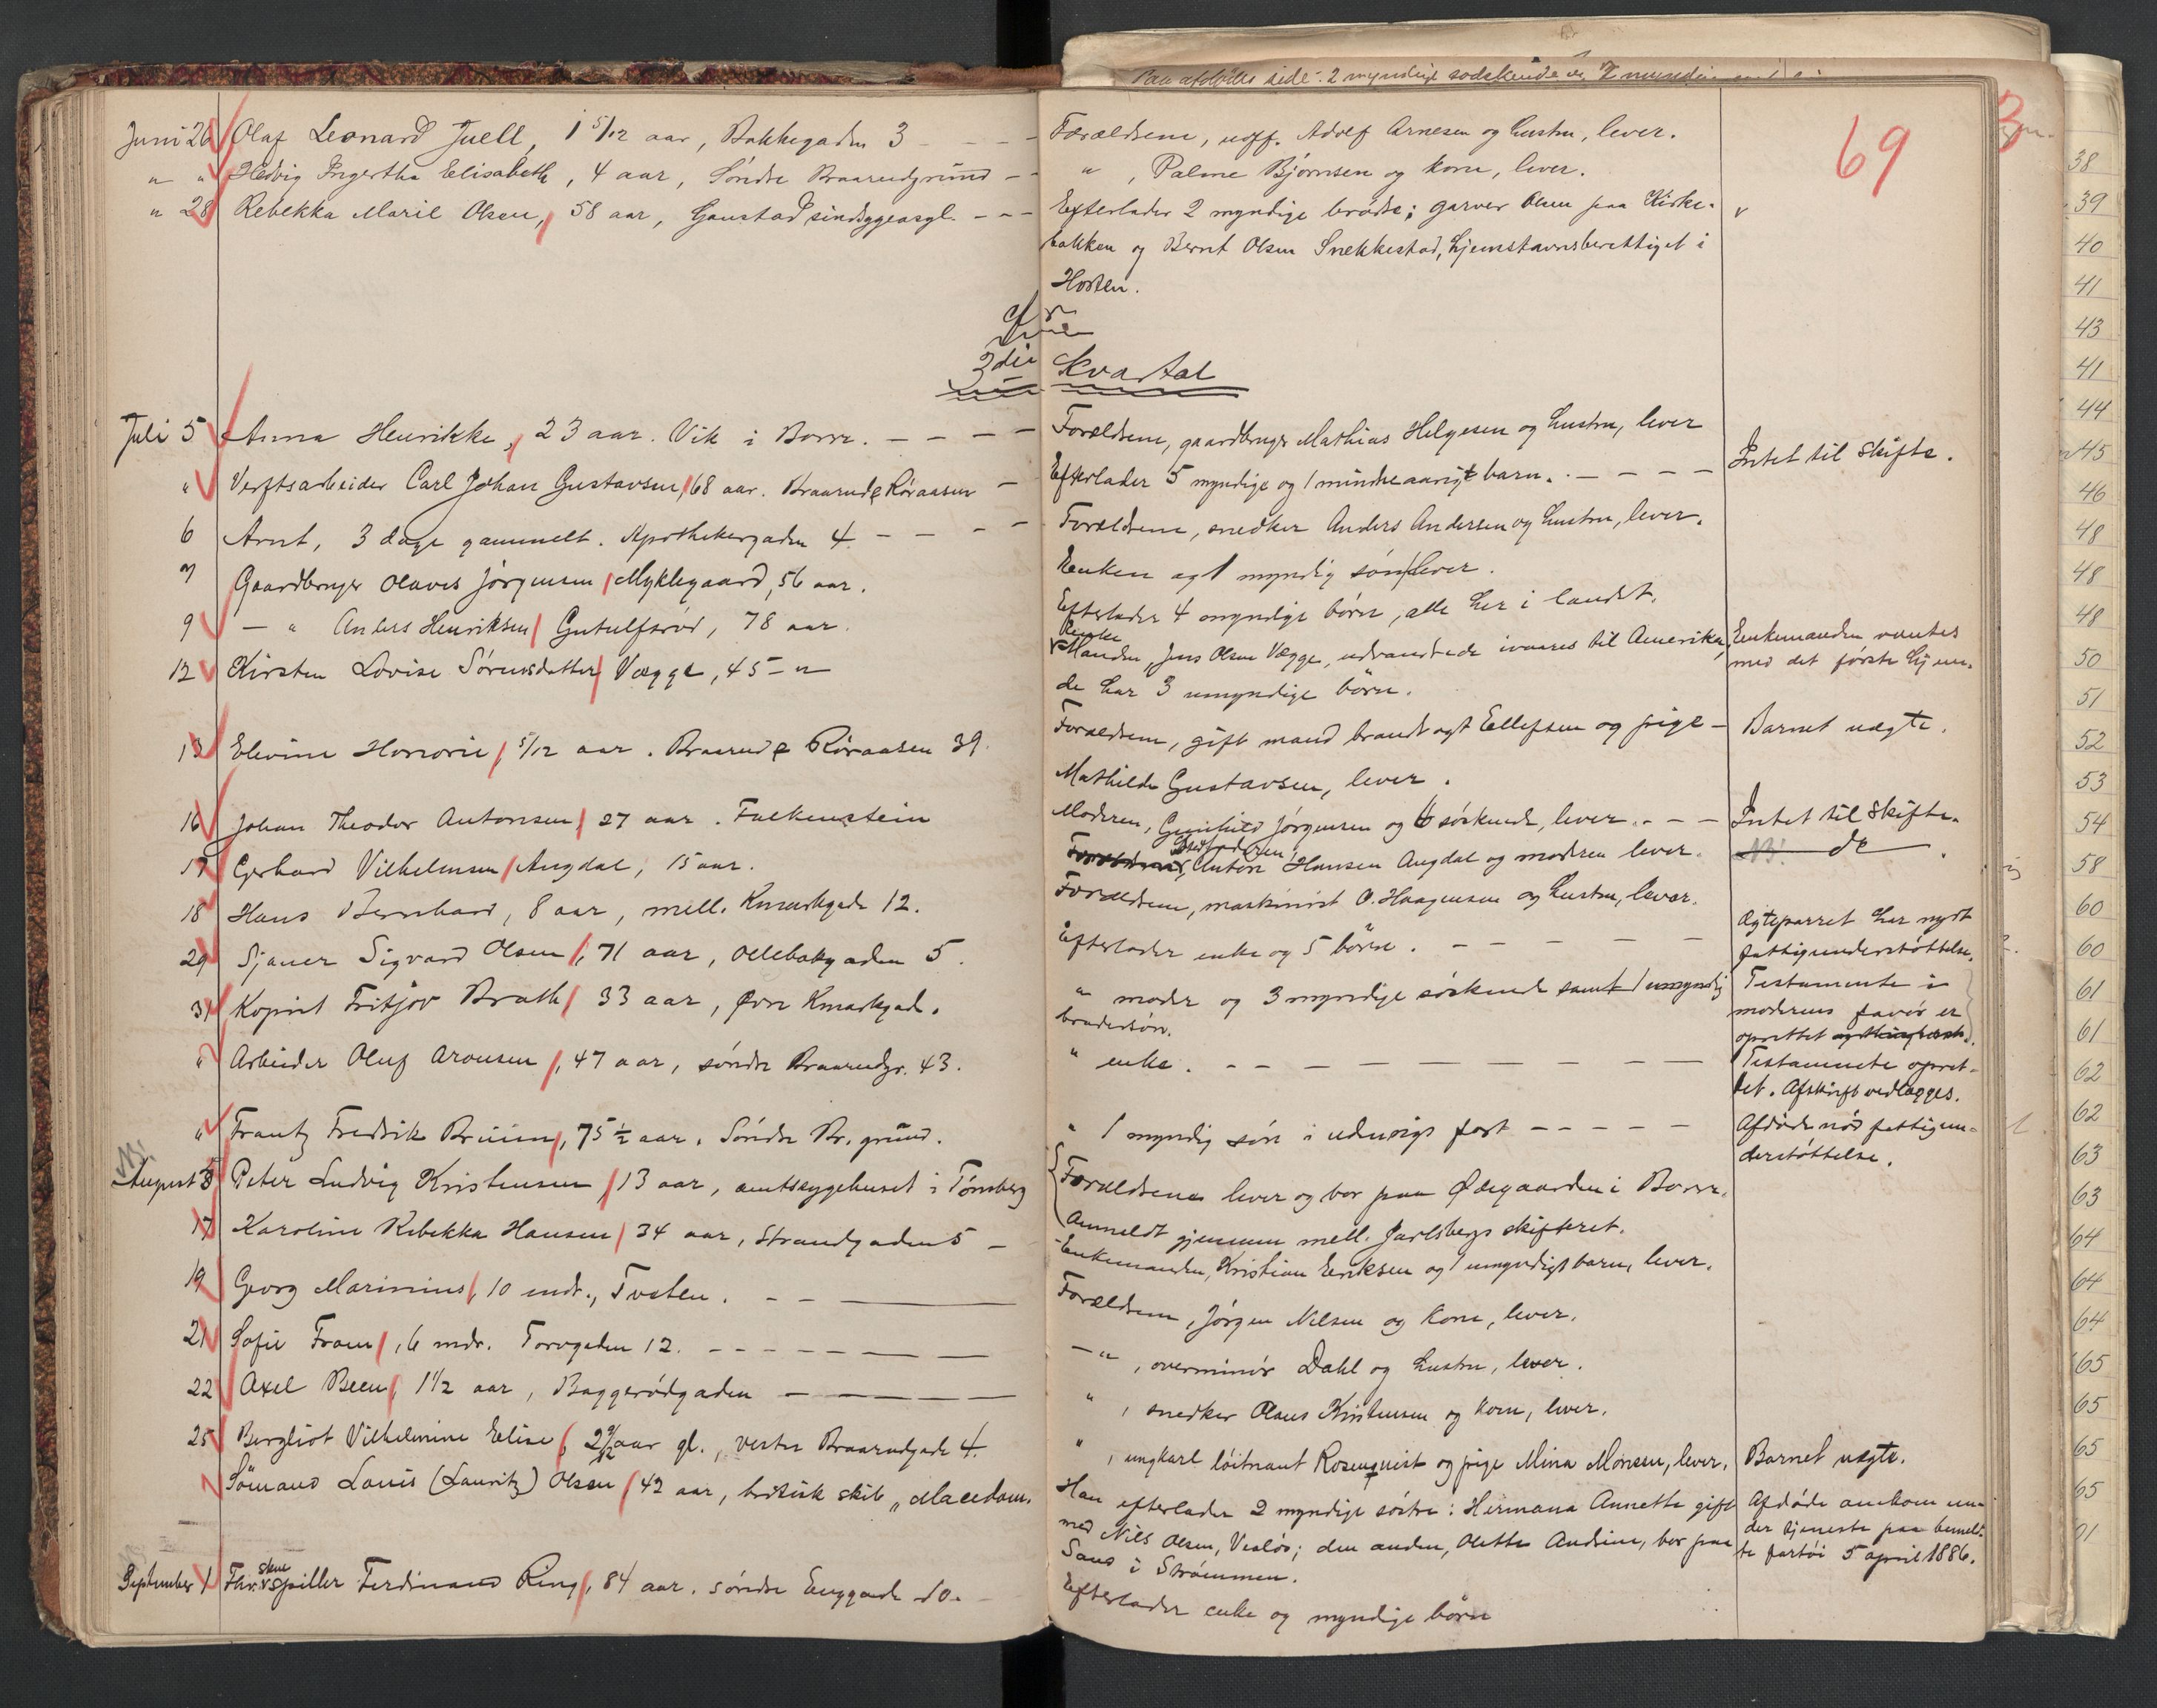 69
Juni 26 Olaf Leonard Juell, 1 5/12 aar, Bakkegaden 3 - - - Forældrene, uoff. Adolf Arnesen og hustru, lever.
" " Hedvig Ingertha Elisabeth, 4 aar, Søndre Braarudgrund - - " , Palme Bjørnsen og kone, lever.
" 28 Rebekka Marie Olsen, 58 aar, Gaustad sindsygeasyl. - - - Efterlader 2 myndige brødre; garver Olsen paa Kirke-
bakken og Bernt Olsen Snekkestad, hjemstavnsberettiget i
Horten.
3die Kvartal
Juli 5 Anna Henrikke, 23 aar. Vik i Borre. - - - - Forældrene, gaardbruger Mathias Helgesen og hustru, lever
" Verftsarbeider Carl Johan Gustavsen, 68 aar. Braarud & Røraasen - Efterlader 5 myndige og 1 mindreaarigt barn. - - - - Intet til skifte.
6 Arnt, 3 dage gammelt. Apothekergaden 4 - - - - Forældrene, snedker Anders Andersen og hustru, lever.
7 Gaardbruger Olaves Jørgensen Myklegaard, 56 aar. Enken og 1 myndig søn lever.
9 - " Anders Henriksen Gutulfsrød, 78 aar. Efterlader 4 myndige børn, alle her i landet.
12 Kirsten Lovise Sørensdatter Vægge, 45 - " Manden, Jens Olsen Vægge, udvandrede ivaares til Amerika, Enkemanden ventes
de har 3 umyndige børn. med det første hjem.
13 Elevine Honorie, 5/12 aar. Braarud & Røraasen 39. Forældrene, gift mand brandvagt Ellefsen og pige - Barnet uægte.
Mathilde Gustavsen, lever.
16 Johan Theodor Antonsen, 27 aar. Falkenstein Moderen, Gunhild Jørgensen og 6 søskende, lever. - - - Intet til skifte.
17 Gerhard Vilhelmsen Augdal, 15 aar. Stedfaderen, Anton Hansen Augdal og moderen lever. do
18 Hans Bernhard, 8 aar, mell. Kmarkgade 12. Forældrene, maskinist O. Haagensen og hustru, lever.
29 Sjauer Sigvard Olsen, 71 aar, Ollebakgaden 5. Efterlader enke og 5 børn. - - - - - Ægteparret har nydt
fattigunderstøttelse.
31 Kopist Fritjov Brath, 33 aar, Øvre Kmarkgad. " moder og 3 myndige søskende samt 1 umyndig Testamente i
brodersøn. moderens favør er
oprettet
" Arbeider Oluf Aronsen, 47 aar, søndre Braarudgr. 43. " enke. - - - - - - - Testamente opret-
tet. Afskrift vedlægges.
" Frantz Fredrik Bruun, 75 1/2 aar. Søndre Br. grund. " 1 myndig søn i udenrigs fart - - - - - Afdøde nød fattigun-
derstøttelse.
NB. August 3 Peter Ludvig Kristensen, 13 aar, amtssygehuset i Tønsberg Forældrene lever og bor paa Ødegaarden i Borre.
Anmeldt gjennem mell. Jarlsbergs skifteret.
17 Karoline Rebekka Hansen, 34 aar, Strandgaden 5 - Enkemanden, Kristian Eriksen og 1 umyndigt barn, lever.
19 Georg Marinius, 10 mdr., Tveten. - - Forældrene, Jørgen Nilsen og kone, lever.
21 Sofie Fram, 6 mdr. Torvgaden 12. - - - - - - " , overminør Dahl og hustru, lever.
22 Axel Been, 1 1/2 aar, Baggerødgaden - - - - " , snedker Olaus Kristensen og kone, lever.
25 Bergliot Vilhelmine Elise, 2 9/12 aar gl., vestre Braarudgade 4. " , ungkarl løitnant Rosenqvist og pige Mina Monsen, lever. Barnet uægte.
Sømand Louis (Lauritz) Olsen, 42 aar, britisk skib "Macedon. Han efterlader 2 myndige søstre: Hermana Annette gift Afdøde omkom un-
med Nils Olsen, Vealøs; den anden, Olette Andrine, bor paa der tjeneste paa bemeld-
Sand i Strømmen. te fartøi 5 april 1886.
September 1 Ferdinand Ring, 84 aar. søndre Enggade 10. Efterlader enke og myndige børn
38
39
40
41
43
41
44
45
46
48
48
48
50
51
52
53
54
58
60
60
61
61
62
62
63
63
64
64
64
65
65
65
65